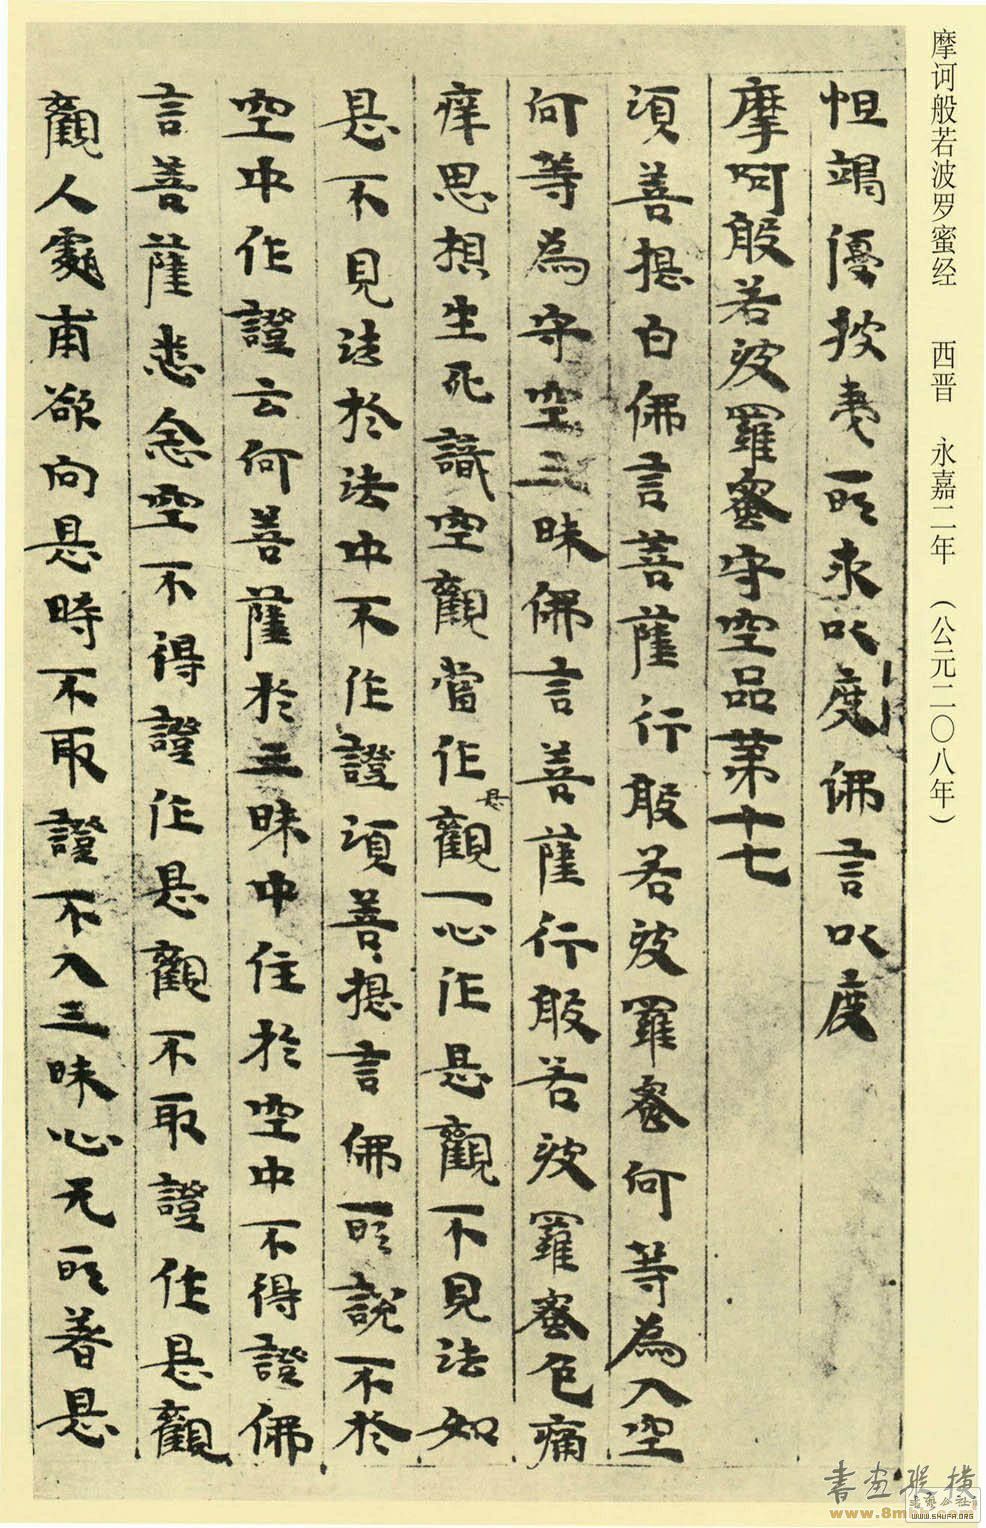 摩诃般若波罗蜜经 西晋 永嘉二年 (公元二〇八年)
怛竭優披夷所求以度佛言以度
摩呵般若波羅蜜守空品第十七
須菩提白佛言菩薩行般若波羅蜜何等為入空
何等為守空三昧佛言菩薩行般若波羅蜜色痛
痒思想生死識空觀當作是觀一心作是觀不見法如
是不見法於法中不作證須菩提言佛所說不於
空中作證云何菩薩於三昧中住於空中不得證佛
言菩薩悉念空不得證作是觀不取證作是觀
觀人處甫欲向是時不取證不入三昧心无所著是
書画縱橫
www.8mhh.com
WWW.SHUFA.ORG